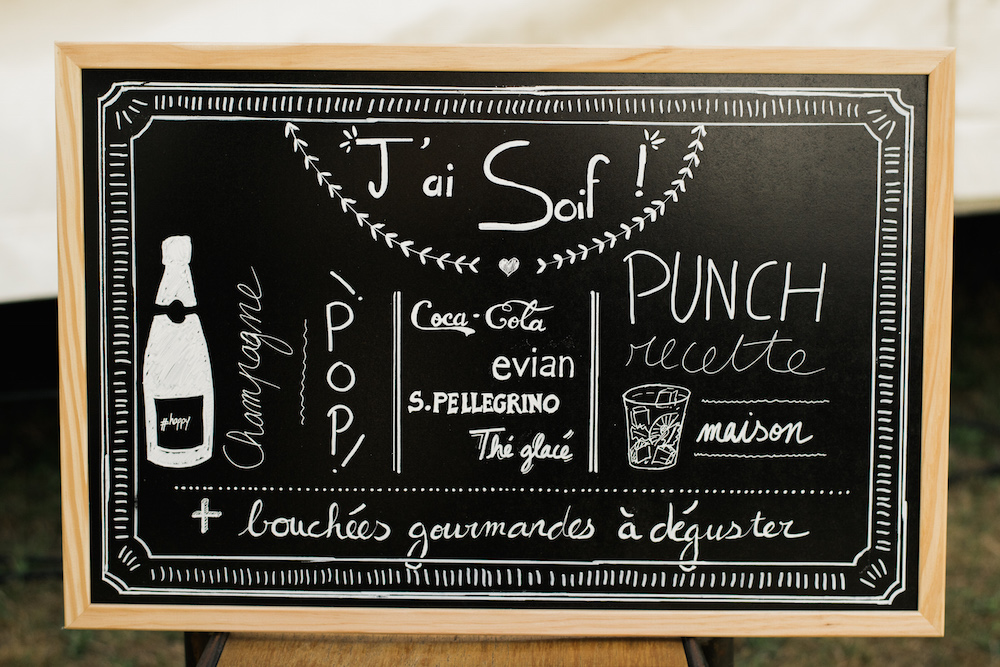 J'ai Soif !
#happy
Champagne
POP!
Coca-Cola
evian
S.PELLEGRINO
Thé glacé
PUNCH
recette
maison
+ bouchées gourmandes à déguster